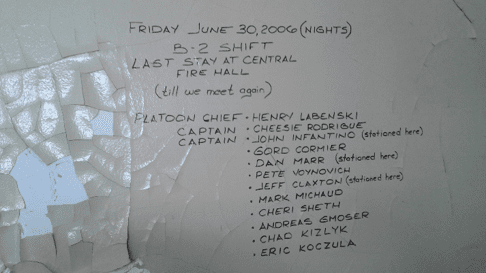 FRIDAY JUNE 30, 2006 (NIGHTS)
B-2 SHIFT
LAST STAY AT CENTRAL
FIRE HALL
(till we meet again)
PLATOON CHIEF • HENRY LABENSKI
CAPTAIN • CHEESIE RODRIGUE
CAPTAIN • JOHN INFANTINO (stationed here)
• GORD CORMIER
• DAN MARR (stationed here)
• PETE VOYNOVICH
• JEFF CLAXTON (stationed here)
• MARK MICHAUD
• CHERI SHETH
• ANDREAS GMOSER
• CHAD KIZLYK
• ERIC KOCZULA